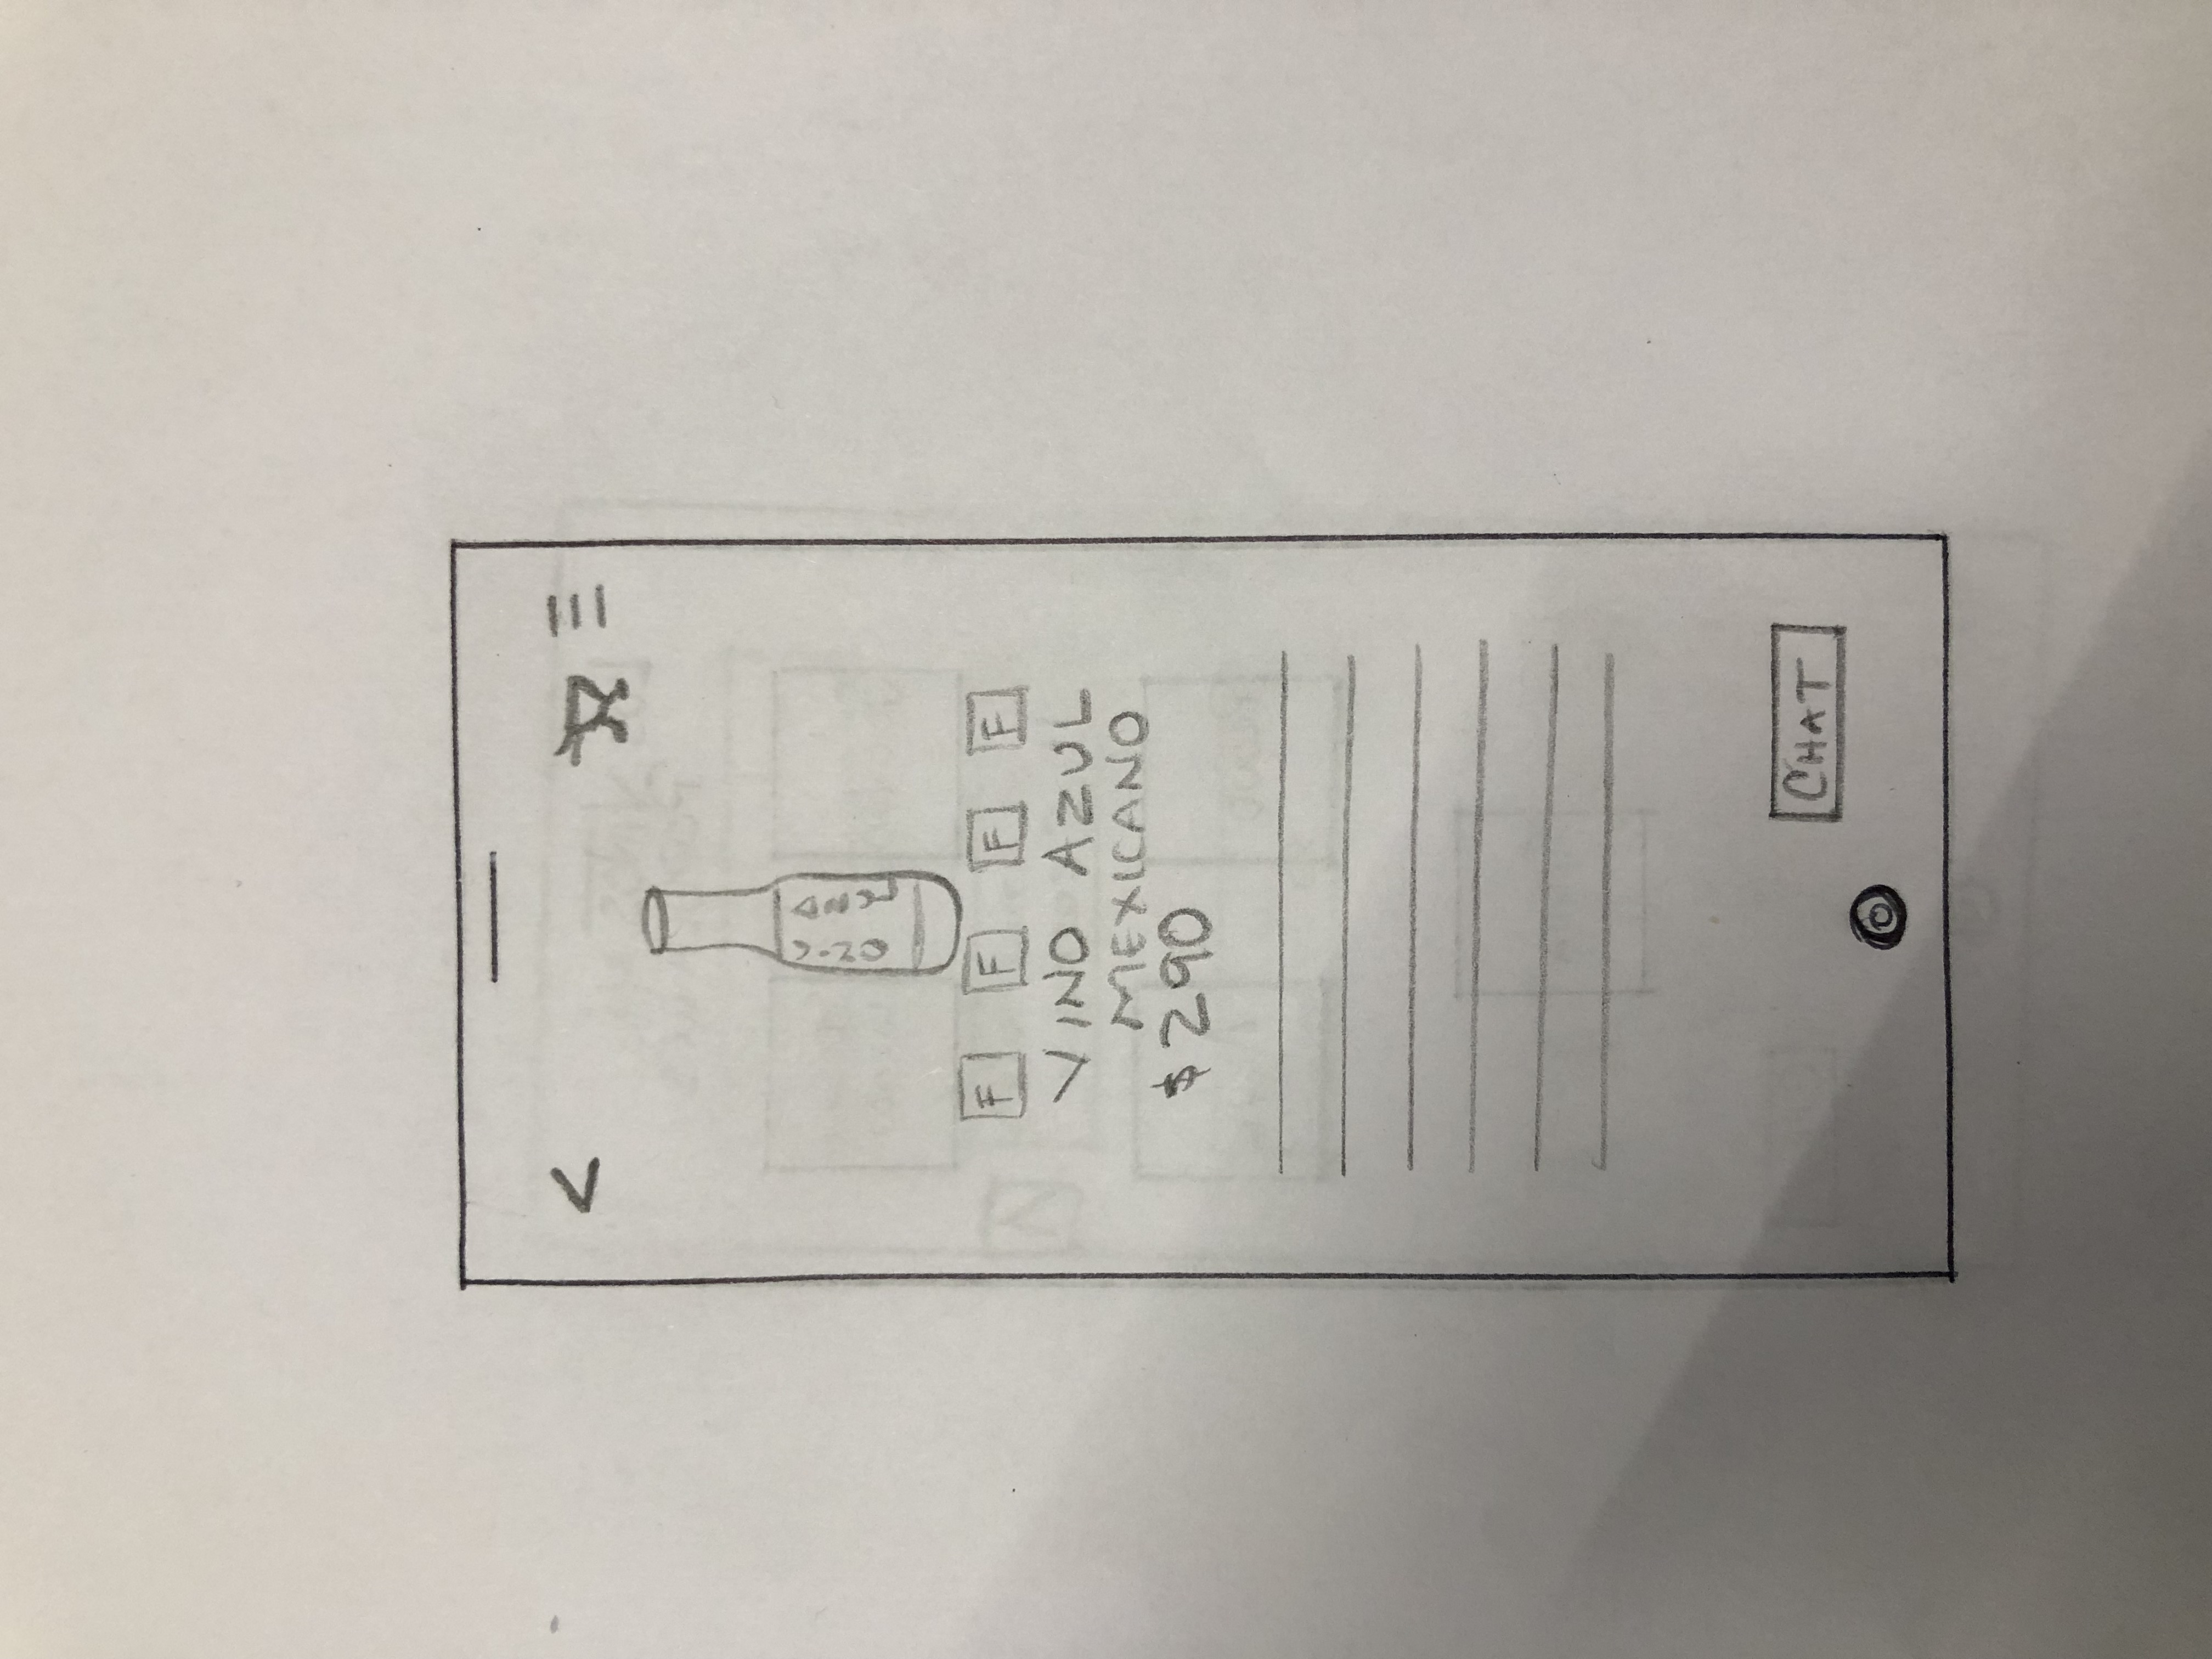 VINO
AZUL
F F F F
VINO AZUL
MEXICANO
$290
CHAT